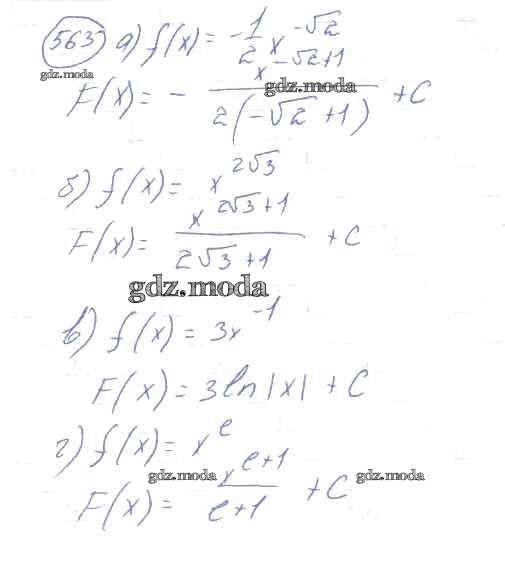 563 а) f(x) = -1/2 x^-√2
gdz.moda
F(x) = - x^-√2+1 / 2(-√2+1) + C
gdz.moda
б) f(x) = x^2√3
F(x) = x^2√3+1 / 2√3+1 + C
gdz.moda
в) f(x) = 3x^-1
F(x) = 3ln|x| + C
г) f(x) = x^e
gdz.moda
gdz.moda
F(x) = x^e+1 / e+1 + C